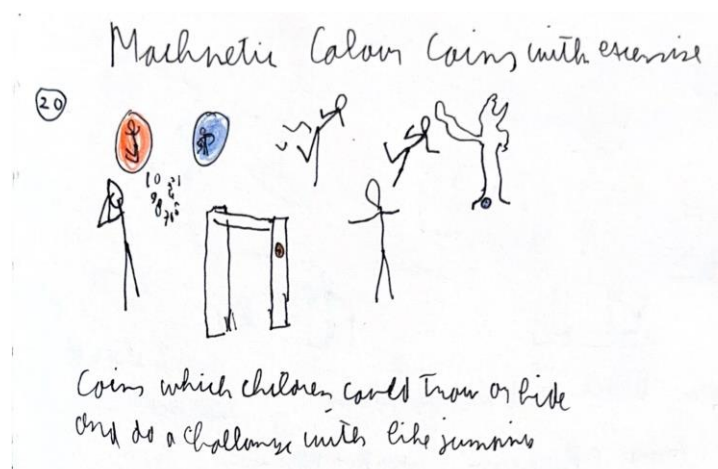 Machnetic Colour Coins with excersise
20
10
9
8
Coins which children could Trow or hide
and do a challange with like jumping